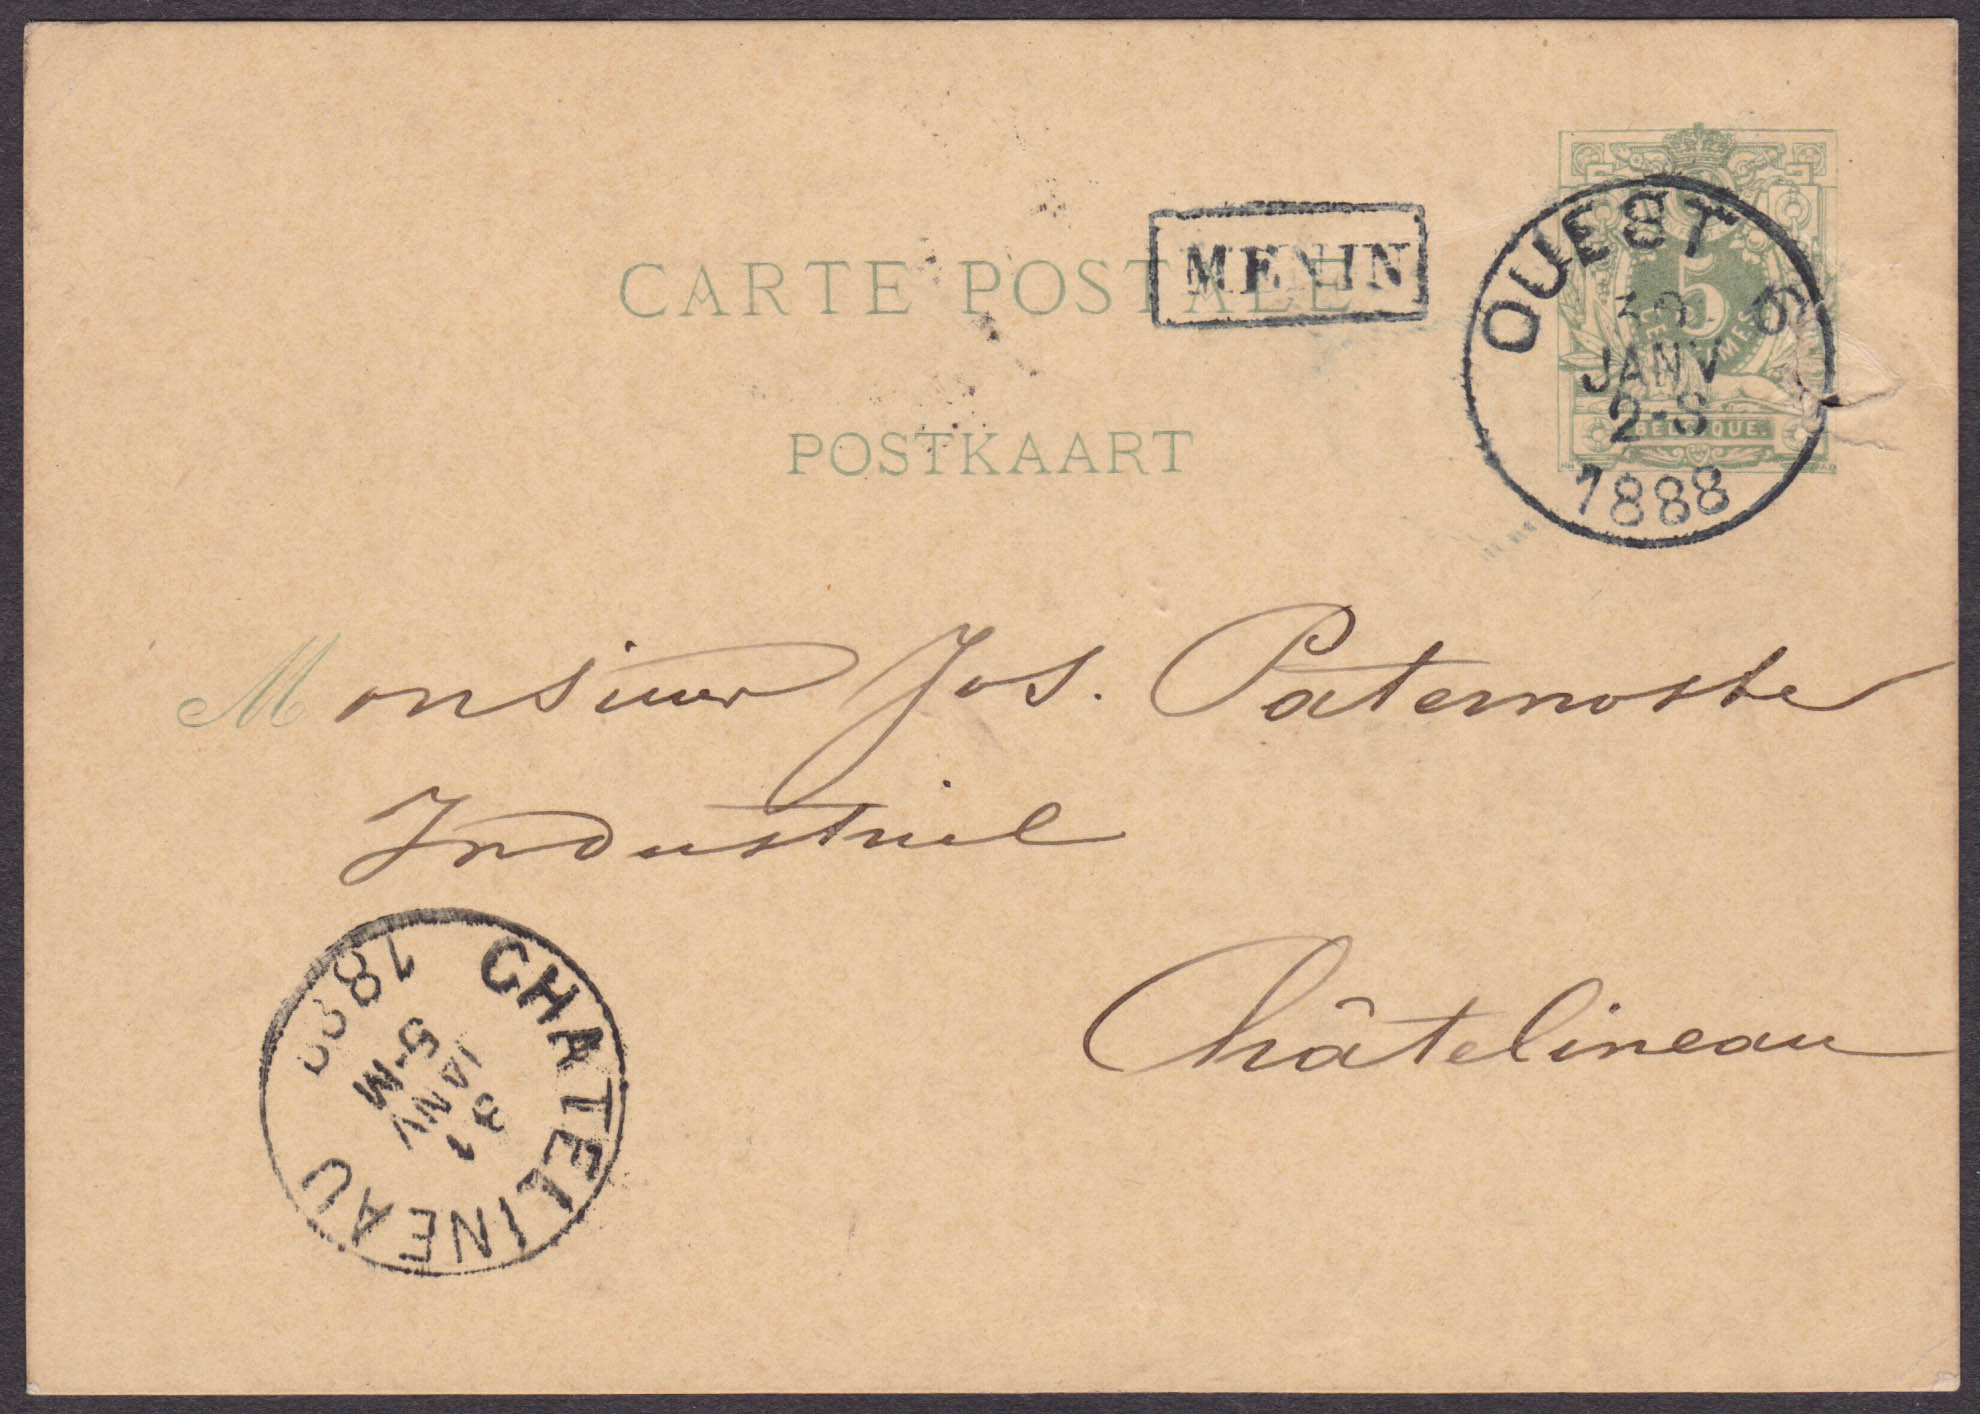 CARTE POSTALE
MENIN
POSTKAART
5
CENTIMES
BELGIQUE
OUEST 6
30
JANV
2-S
1888
Monsieur Jos. Paternostre
Industriel
Châtelineau
CHATELINEAU
31
JANV
5-M
1888